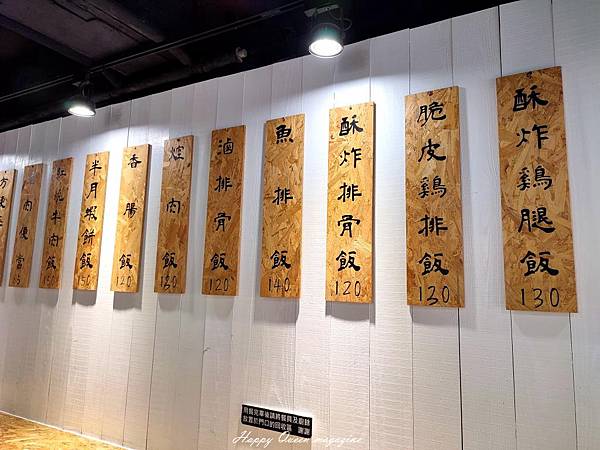 酥炸鷄腿飯 130
脆皮鷄排飯 130
酥炸排骨飯 120
魚排飯 140
滷排骨飯 120
焢肉飯 130
香腸飯 120
半月蝦餅飯 150
紅燒牛肉飯
肉便當
用餐完畢後請將餐具及廚餘
放置於門口的回收區 謝謝
Happy Queen magazine